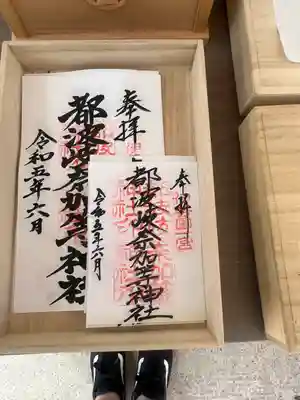 奉拝
都波岐奈加等神社
令和五年六月
奉拝
都波岐奈加等神社
令和五年六月